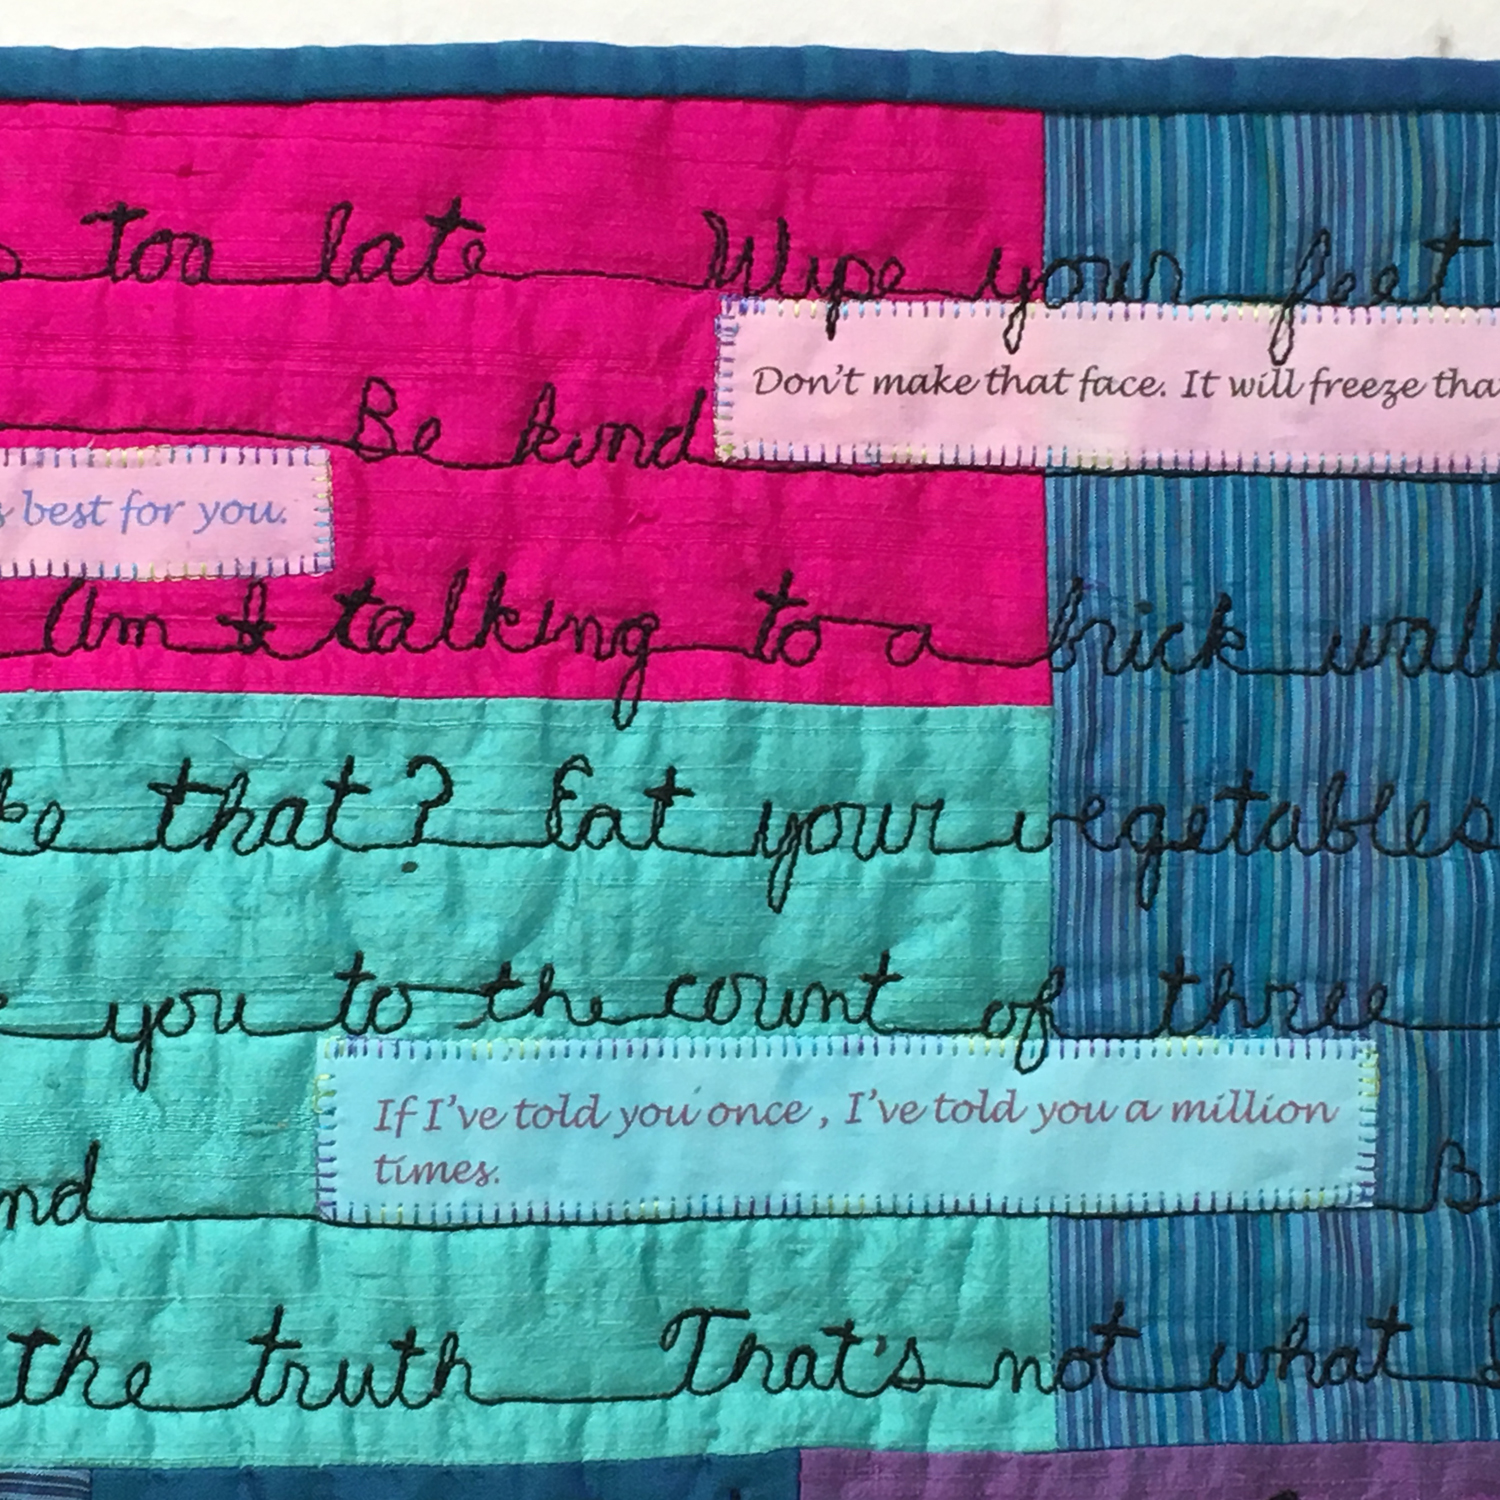 too late Wipe your feet
Don't make that face. It will freeze
Be kind
best for you.
Am I talking to a brick
that? Eat your vegetables
you to the count of three
If I've told you once , I've told you a million
times.
the truth That's not what